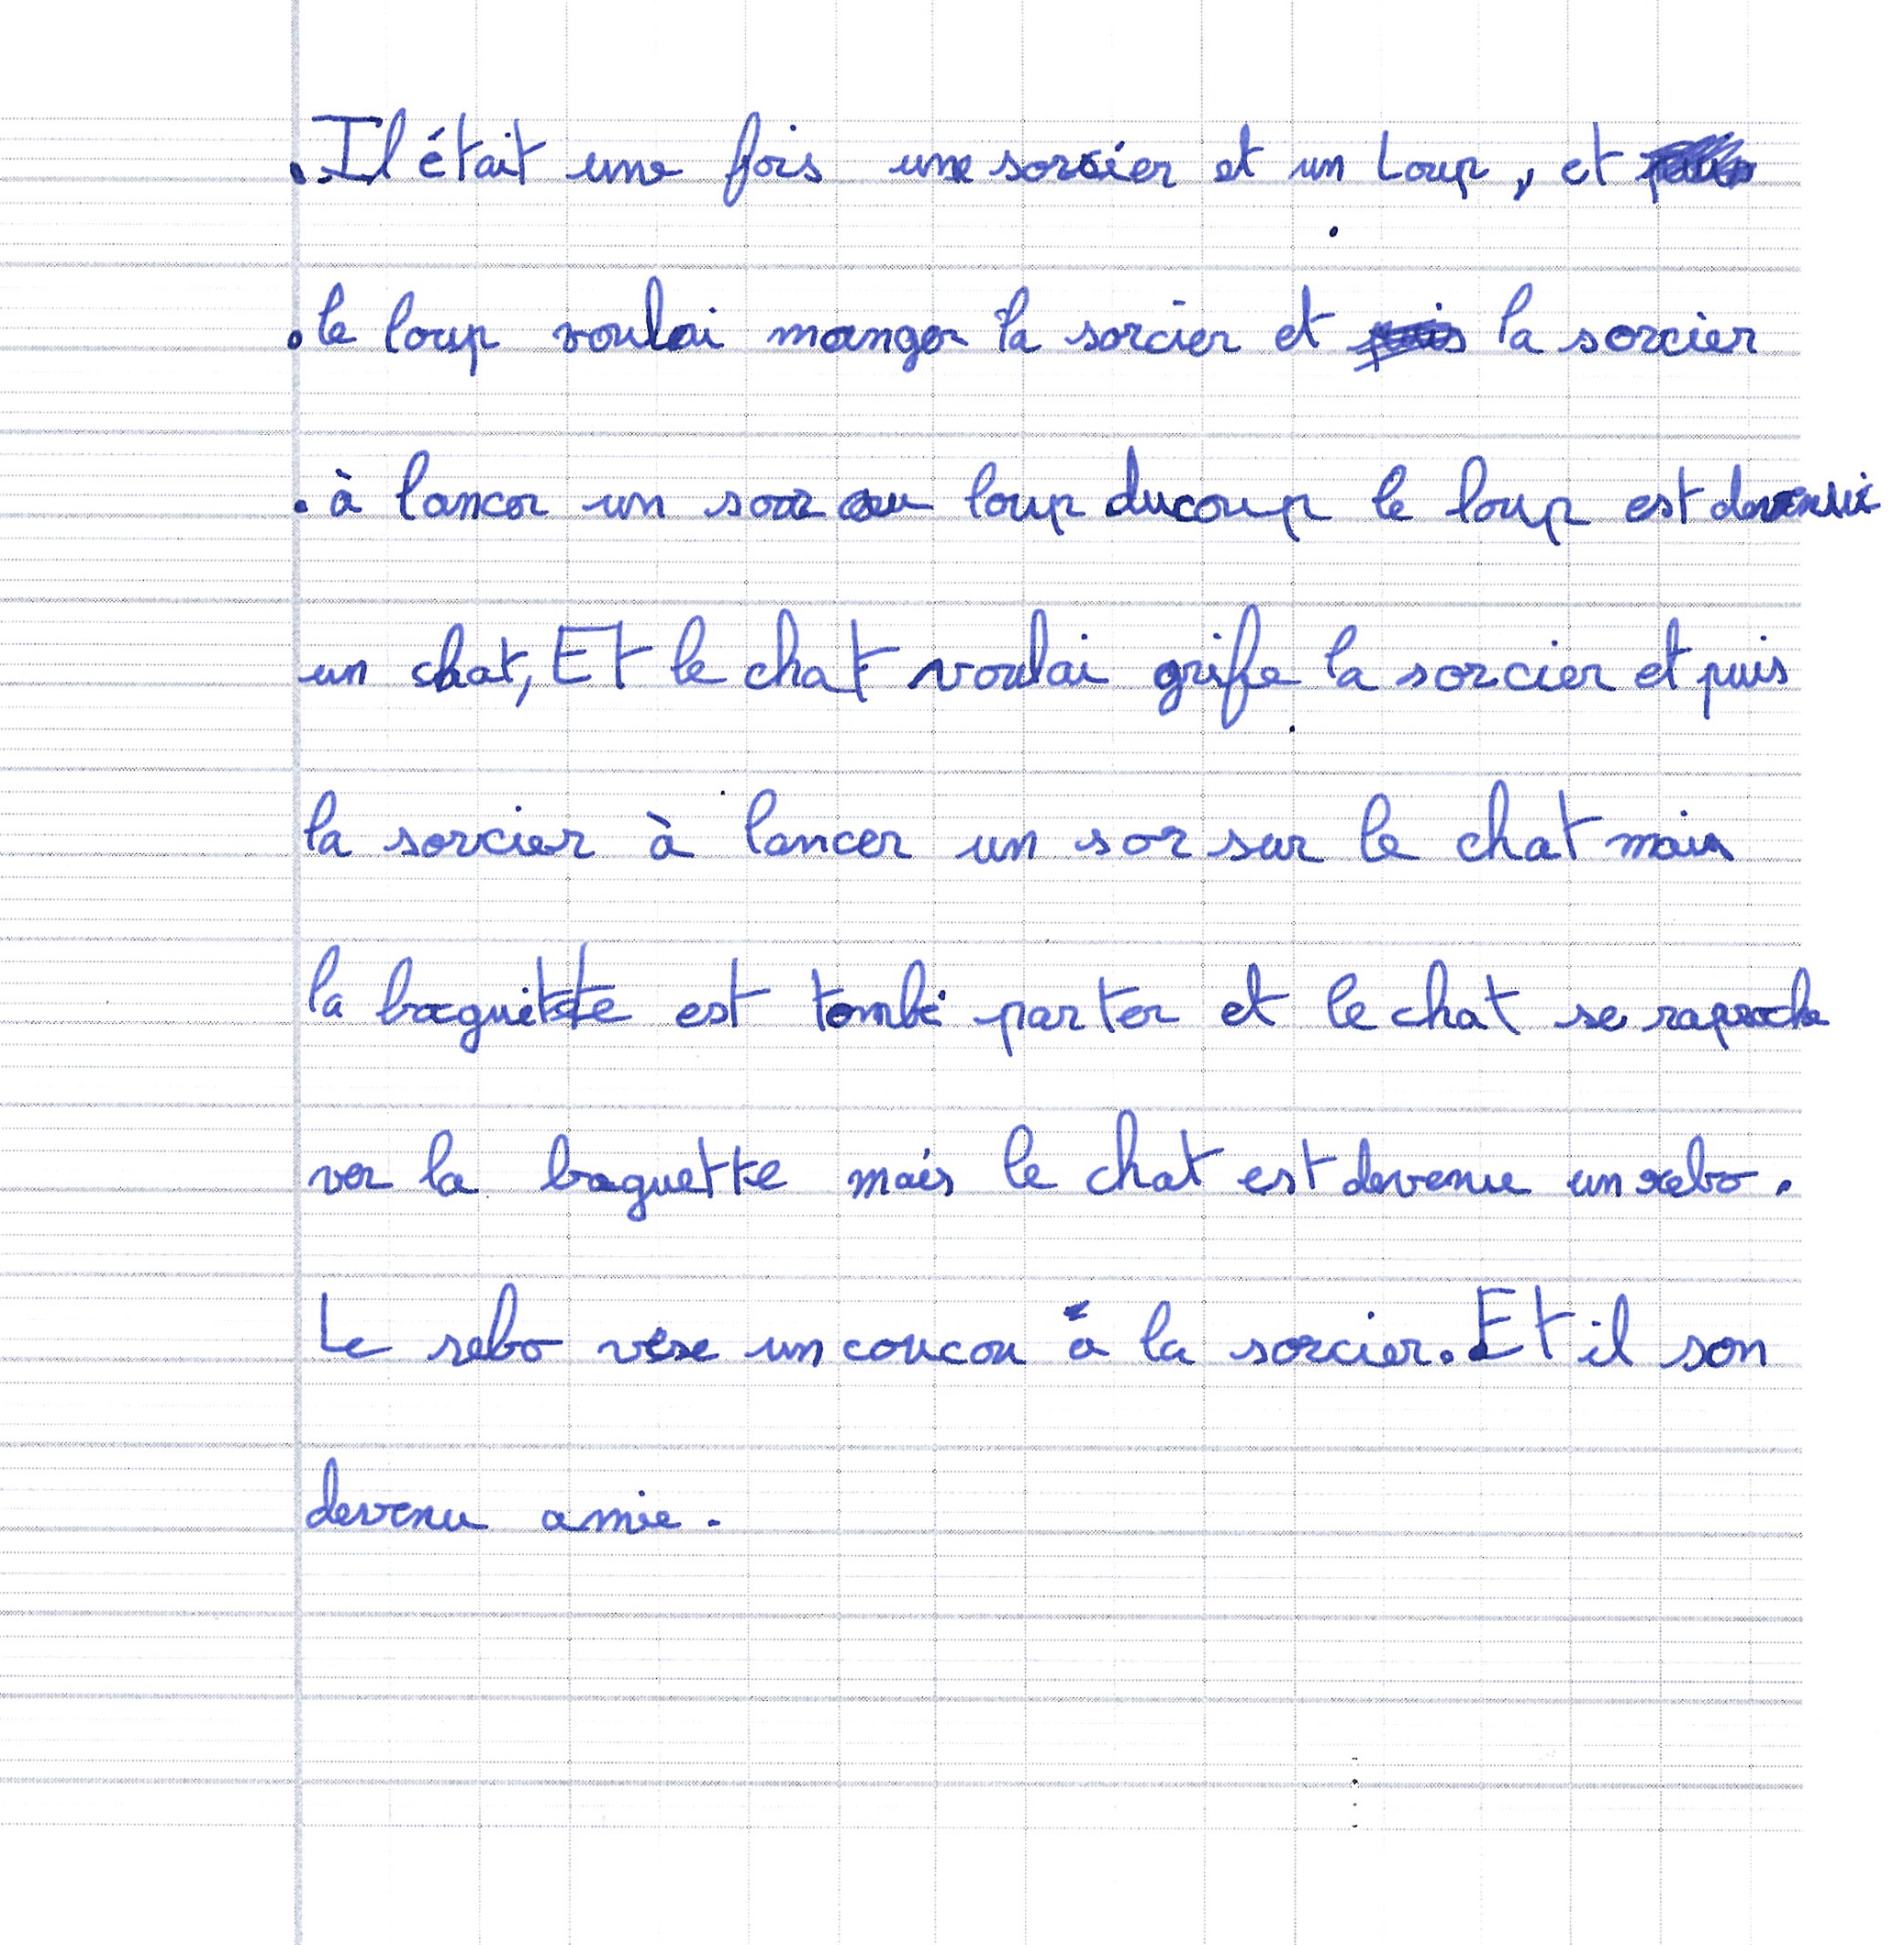 . Il était une fois une sorcier et un Loup, et
. le loup voulai manger la sorcier et puis la sorcier
. à lancer un sor au loup ducoup le loup est devenu
un chat, Et le chat voulai grife la sorcier et puis
la sorcier à lancer un sor sur le chat mais
la baguitete est tombé par ter et le chat se raproche
ver la baguette mais le chat est devenue un rebo.
Le rebo vese un coucou à la sorcier. Et il son
devenu amie.